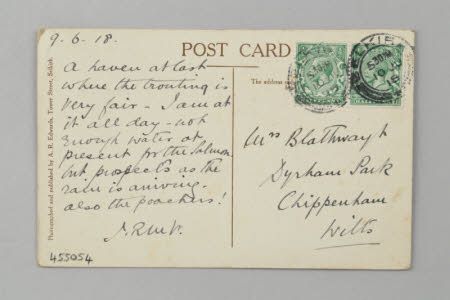 9.6.18.
POST CARD
A haven at last
where the trouting is
very fair - I am at
it all day - not
enough water at
present for the Salmon
but prospects as the
rain is arriving -
also the poachers!
The address
Mrs Blathwayt
Dyrham Park
Chippenham
Wilts
Photographed and published by A. R. Edwards, Tower Street, Selkirk.
455054
SELKIRK